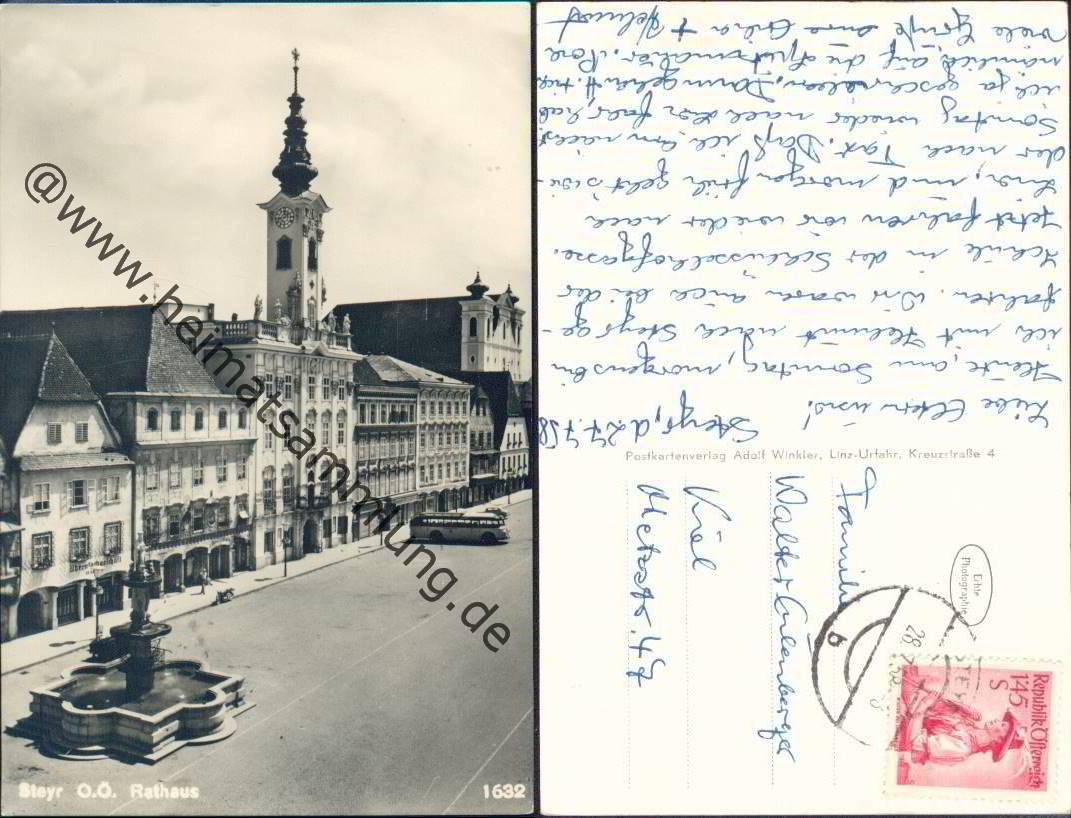 @www.heimatsammlung.de
Steyr O.Ö. Rathaus
1632
Steyr, d. 27.7.58
Liebe Eltern und!
Heute, am Sonntag, morgens bin
ich mit Helmut nach Steyr ge-
fahren. Wir waren auch bei der
Schule in der Schlüsselhofgasse.
Jetzt fahren wir wieder nach
Linz, und morgen früh geht's wie-
der nach Tax. Daß ich am näch
Sonntag wieder nach Linz fahr, hab
ich ja geschrieben. Dann geh
nämlich auf die
Viele Grüße eure + Helmut
Postkartenverlag Adolf Winkler, Linz-Urfahr, Kreuzstraße 4
Familie
Walter
Kiel
Metzstr. 49
Echte
Photographie
b
28
STEY
Republik Österreich
1'45
S